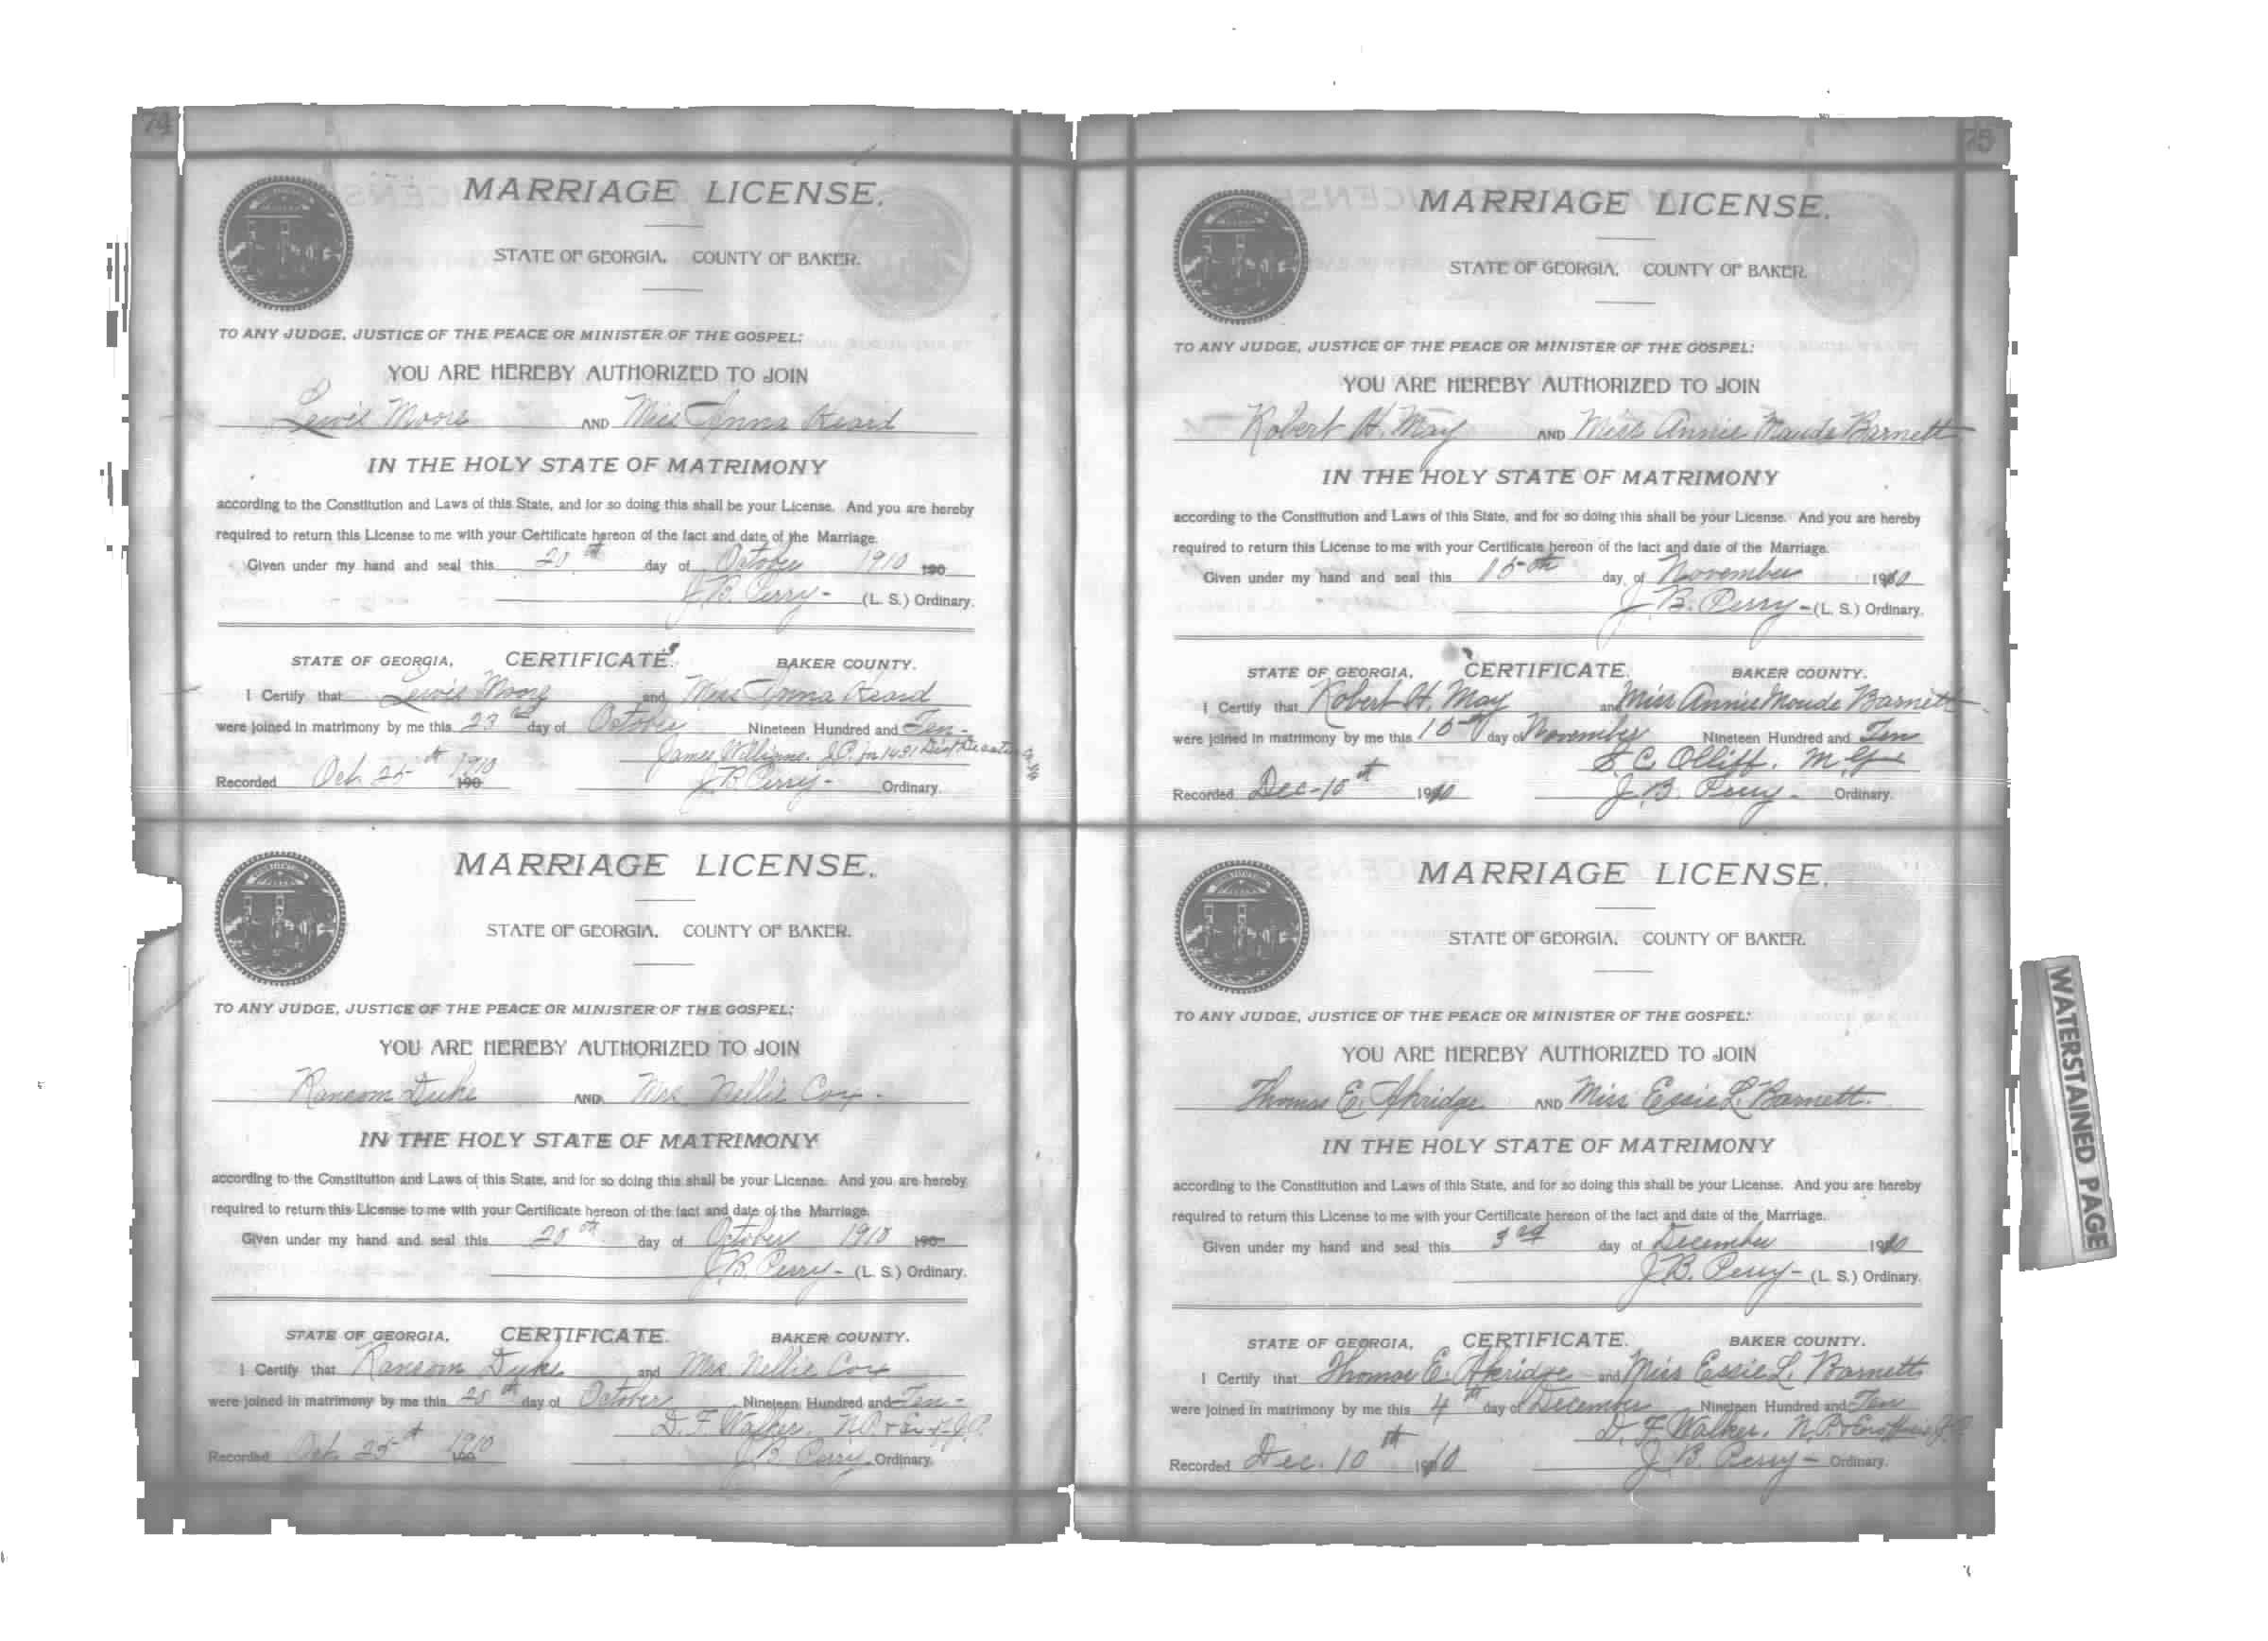 74
MARRIAGE LICENSE.
STATE OF GEORGIA. COUNTY OF BAKER.
TO ANY JUDGE, JUSTICE OF THE PEACE OR MINISTER OF THE GOSPEL:
YOU ARE HEREBY AUTHORIZED TO JOIN
Lewis Moore AND Miss Anna Heard
IN THE HOLY STATE OF MATRIMONY
according to the Constitution and Laws of this State, and for so doing this shall be your License. And you are hereby
required to return this License to me with your Certificate hereon of the fact and date of the Marriage.
Given under my hand and seal this 20th day of October 1910 190
J. B. Perry- (L. S.) Ordinary.
STATE OF GEORGIA, CERTIFICATE. BAKER COUNTY.
I Certify that Lewis Moore and Miss Anna Heard
were joined in matrimony by me this 23rd day of October Nineteen Hundred and Ten-
James Williams. J.P. in 1431 Dist Decatur Co. Ga
Recorded Oct. 25th 1910 190 J. B. Perry- Ordinary.
MARRIAGE LICENSE.
STATE OF GEORGIA. COUNTY OF BAKER.
TO ANY JUDGE, JUSTICE OF THE PEACE OR MINISTER OF THE GOSPEL:
YOU ARE HEREBY AUTHORIZED TO JOIN
Ransom Duke AND Mrs. Nellie Cox.
IN THE HOLY STATE OF MATRIMONY
according to the Constitution and Laws of this State, and for so doing this shall be your License. And you are hereby
required to return this License to me with your Certificate hereon of the fact and date of the Marriage.
Given under my hand and seal this 25th day of October 1910 190
J. B. Perry- (L. S.) Ordinary.
STATE OF GEORGIA, CERTIFICATE. BAKER COUNTY.
I Certify that Ransom Duke and Mrs. Nellie Cox
were joined in matrimony by me this 25th day of October Nineteen Hundred and Ten-
D. F. Walker. N.P. & Ex-of-J.P.
Recorded Oct. 25th 1910 190 J. B. Perry Ordinary.
75
MARRIAGE LICENSE.
STATE OF GEORGIA. COUNTY OF BAKER.
TO ANY JUDGE, JUSTICE OF THE PEACE OR MINISTER OF THE GOSPEL:
YOU ARE HEREBY AUTHORIZED TO JOIN
Robert H. May AND Miss Annie Maude Barnett
IN THE HOLY STATE OF MATRIMONY
according to the Constitution and Laws of this State, and for so doing this shall be your License. And you are hereby
required to return this License to me with your Certificate hereon of the fact and date of the Marriage.
Given under my hand and seal this 15th day of November 1910
J. B. Perry- (L. S.) Ordinary.
STATE OF GEORGIA, CERTIFICATE. BAKER COUNTY.
I Certify that Robert H. May and Miss Annie Maude Barnett
were joined in matrimony by me this 15th day of November Nineteen Hundred and Ten
S. C. Olliff. M.G.
Recorded Dec-10th 1910 J. B. Perry- Ordinary.
MARRIAGE LICENSE.
STATE OF GEORGIA. COUNTY OF BAKER.
TO ANY JUDGE, JUSTICE OF THE PEACE OR MINISTER OF THE GOSPEL:
YOU ARE HEREBY AUTHORIZED TO JOIN
Thomas E. Akridge AND Miss Essie L. Barnett.
IN THE HOLY STATE OF MATRIMONY
according to the Constitution and Laws of this State, and for so doing this shall be your License. And you are hereby
required to return this License to me with your Certificate hereon of the fact and date of the Marriage.
Given under my hand and seal this 3rd day of December 1910
J. B. Perry- (L. S.) Ordinary.
STATE OF GEORGIA, CERTIFICATE. BAKER COUNTY.
I Certify that Thomas E. Akridge and Miss Essie L. Barnett
were joined in matrimony by me this 4th day of December Nineteen Hundred and Ten
D. F. Walker. N.P. & Exofficio J.P.
Recorded Dec. 10th 1910 J. B. Perry- Ordinary.
WATERSTAINED PAGE